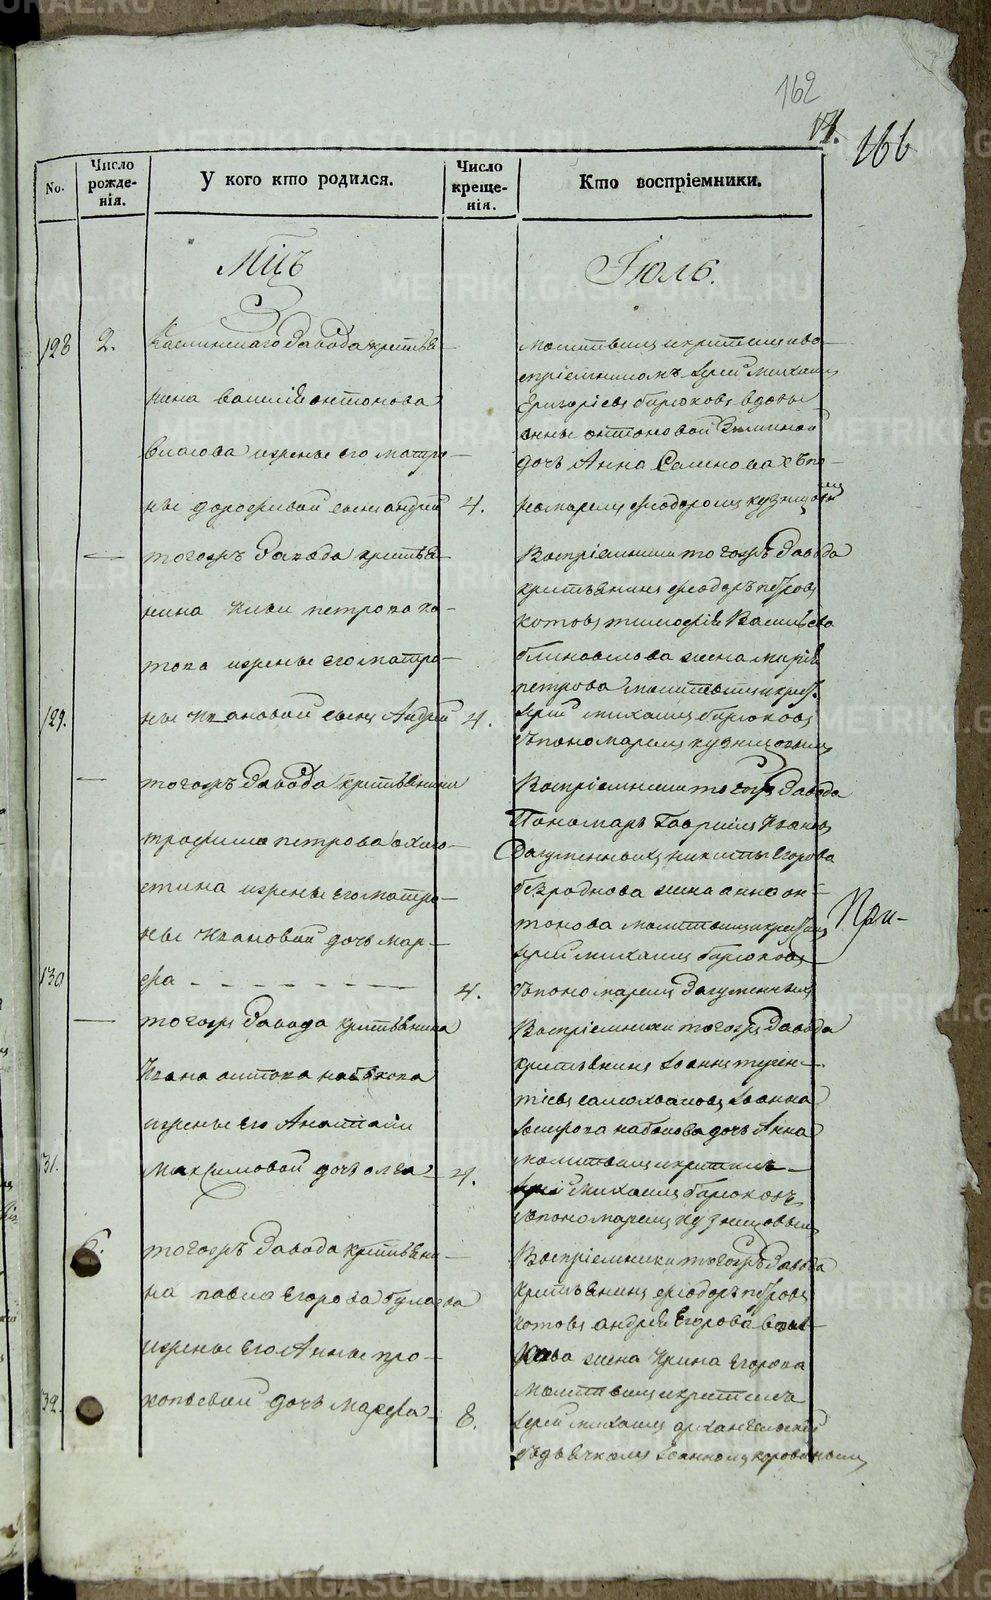 162
17.
166
No.
Число рожде-нія.
У кого кто родился.
Число креще-нія.
Кто воспріемники.
Мцъ
Іюль.
128
2.
Каслинскаго завода крестья-
нина василія антонова
власова изжены его матре-
ны дорофеевой сынъ андрей
4.
молитвилъ и крестилъ и во-
спріемникомъ Іерей михаилъ
Григорьевъ бирюковъ вдовы
анны антоновой
дочь Анна Семенова съ по-
номаремъ феодоромъ кузнецовымъ
129.
—
тогожъ завода крестья-
нина петрова ко-
това изжены его матре-
ны Ивановой сынъ Андрей
4.
Воспріемники тогожъ завода
крестьянинъ феодоръ петровъ
котовъ тимофея Васильева
блиновскова жена марія
петрова молитвилъ и крест.
Іерей михаилъ бирюковъ
съ пономаремъ кузнецовымъ
130
—
тогожъ завода крестьянина
трофима петрова
изжены его матре-
ны Ивановой дочь мар-
фа
4.
Воспріемники тогожъ завода
Пономарь Гавріилъ Ивановъ
никиты Егорова
безроднова жена анна ан-
тонова молитвилъ и крестилъ
Іерей михаилъ бирюковъ
съ пономаремъ
При-
31.
—
тогожъ завода крестьянина
Ивана осипова набокова
изжены его Анастасіи
Максимовой дочь олга
4.
Воспріемники тогожъ завода
крестьянинъ Іоаннъ терен-
тіевъ самохваловъ Іоанна
Іосипова набокова дочь Анна
молитвилъ и крестилъ
Іерей михаилъ бирюковъ
съ пономаремъ кузнецовымъ
32.
6.
тогожъ завода крестьяни-
на павла Егорова булаева
изжены его Анны про-
копьевой дочь марфа
8.
Воспріемники тогожъ завода
крестьянинъ феодоръ петровъ
котовъ андрея Егорова
жена Ирина Егорова
молитвилъ и крестилъ
Іерей михаилъ архангельскій
съ дьячкомъ Іоанномъ коровинымъ
METRIKI.GASO-URAL.RU